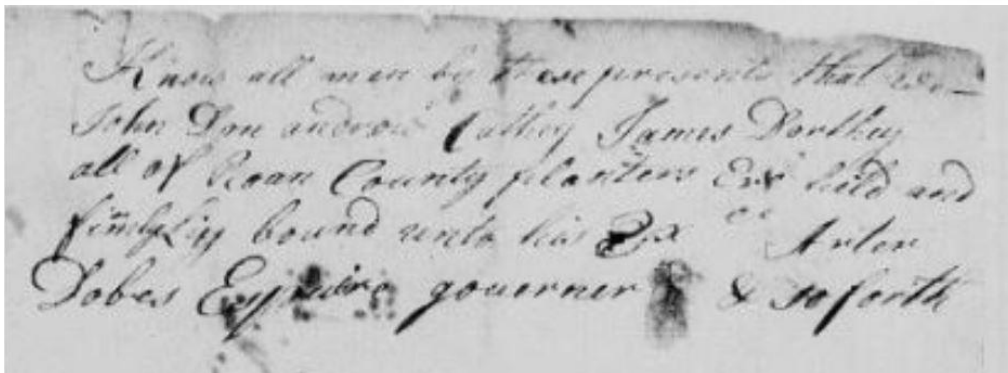 Know all men by these presents that we
John Don andrew Cathey James Dorthey
all of Roan County planters Ers held and
firmly bound unto his Ex ce Arter
Dobes Esqr governer & so forth